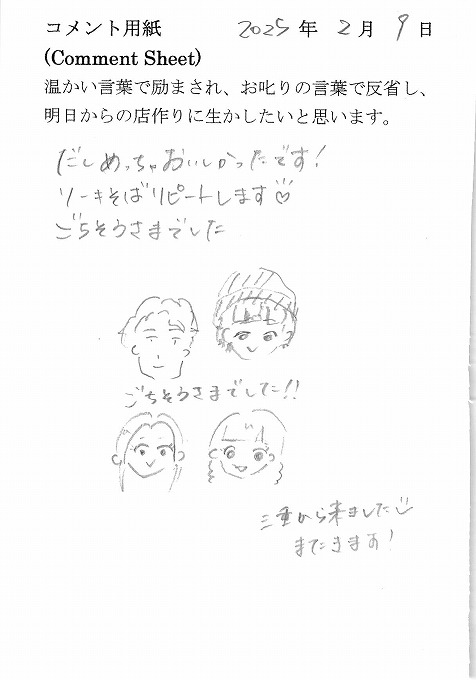 コメント用紙 2025 年 2 月 9 日
(Comment Sheet)
温かい言葉で励まされ、お叱りの言葉で反省し、
明日からの店作りに生かしたいと思います。
だしめっちゃおいしかったです!
ソーキそばリピートします♡
ごちそうさまでした
ごちそうさまでした!!
三重から来ました
またきます!